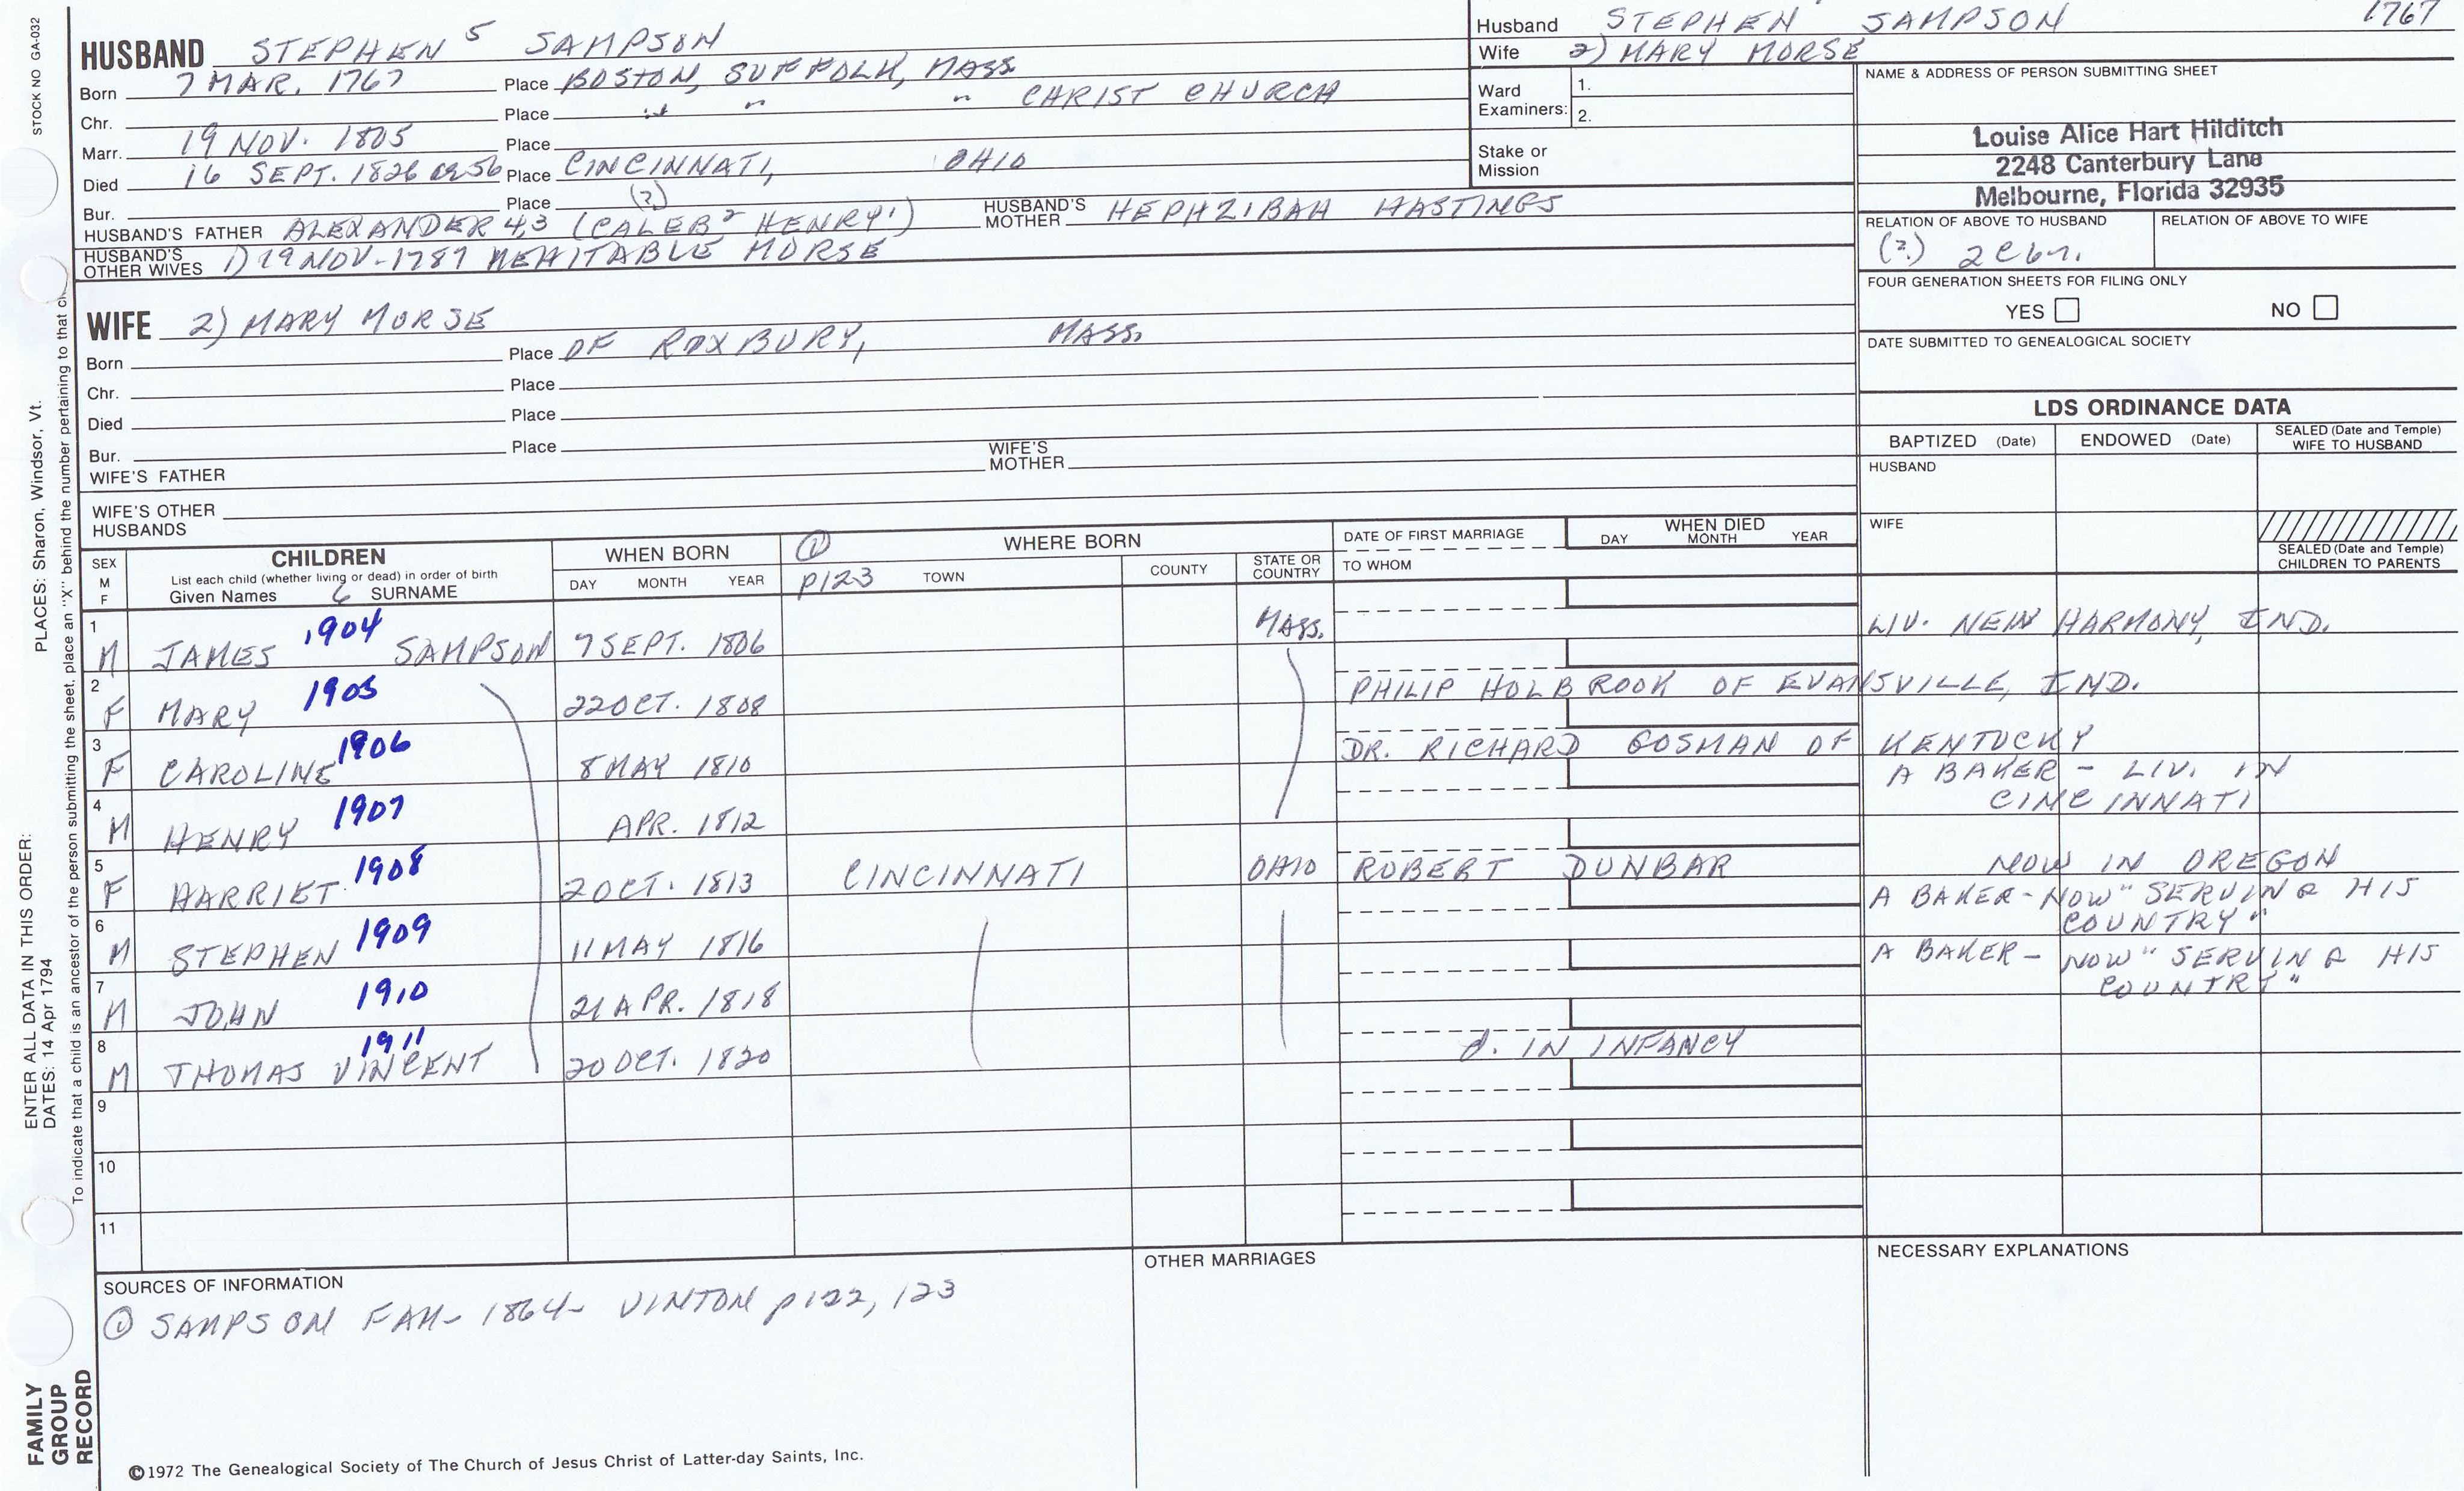 STOCK NO GA-032
HUSBAND STEPHEN 5 SAMPSON
Born 7 MAR. 1767 Place BOSTON, SUFFOLK, MASS
Chr. Place " " " CHRIST CHURCH
Marr. 19 NOV. 1805 Place
Died 16 SEPT. 1826 or 56 Place CINCINNATI, OHIO
Bur. Place (?)
HUSBAND'S FATHER ALEXANDER 4,3 (CALEB 2 HENRY 1) HUSBAND'S MOTHER HEPHZIBAH HASTINGS
HUSBAND'S OTHER WIVES 1) 19 NOV-1787 MEHITABLE MORSE
WIFE 2) MARY MORSE
Born Place OF ROXBURY, MASS.
Chr. Place
Died Place
Bur. Place
WIFE'S FATHER WIFE'S MOTHER
WIFE'S OTHER HUSBANDS
Husband STEPHEN SAMPSON 1767
Wife 2) MARY MORSE
Ward Examiners: 1.
2.
Stake or Mission
NAME & ADDRESS OF PERSON SUBMITTING SHEET
Louise Alice Hart Hilditch
2248 Canterbury Lane
Melbourne, Florida 32935
RELATION OF ABOVE TO HUSBAND RELATION OF ABOVE TO WIFE
(?)
FOUR GENERATION SHEETS FOR FILING ONLY
YES NO
DATE SUBMITTED TO GENEALOGICAL SOCIETY
LDS ORDINANCE DATA
BAPTIZED (Date) ENDOWED (Date) SEALED (Date and Temple) WIFE TO HUSBAND
HUSBAND
WIFE
SEALED (Date and Temple) CHILDREN TO PARENTS
SEX M F CHILDREN WHEN BORN ① WHERE BORN DATE OF FIRST MARRIAGE WHEN DIED
List each child (whether living or dead) in order of birth DAY MONTH YEAR p123 TOWN COUNTY STATE OR COUNTRY TO WHOM DAY MONTH YEAR
Given Names 6 SURNAME
1 M JAMES 1904 SAMPSON 7 SEPT. 1806 MASS. LIV. NEW HARMONY, IND.
2 F MARY 1905 22 OCT. 1808 PHILIP HOLBROOK OF EVANSVILLE, IND.
3 F CAROLINE 1906 8 MAY 1810 DR. RICHARD GOSMAN OF KENTUCKY
4 M HENRY 1907 APR. 1812 A BAKER - LIV. IN CINCINNATI
5 F HARRIET 1908 2 OCT. 1813 CINCINNATI OHIO ROBERT DUNBAR NOW IN OREGON
6 M STEPHEN 1909 11 MAY 1816 A BAKER - NOW "SERVING HIS COUNTRY"
7 M JOHN 1910 21 APR. 1818 A BAKER - NOW "SERVING HIS COUNTRY"
8 M THOMAS VINCENT 1911 20 OCT. 1820 d. IN INFANCY
9
10
11
SOURCES OF INFORMATION
① SAMPSON FAM- 1864- VINTON p122, 123
OTHER MARRIAGES
NECESSARY EXPLANATIONS
©1972 The Genealogical Society of The Church of Jesus Christ of Latter-day Saints, Inc.
FAMILY GROUP RECORD
ENTER ALL DATA IN THIS ORDER:
DATES: 14 Apr 1794
PLACES: Sharon, Windsor, Vt.
To indicate that a child is an ancestor of the person submitting the sheet, place an "X" behind the number pertaining to that